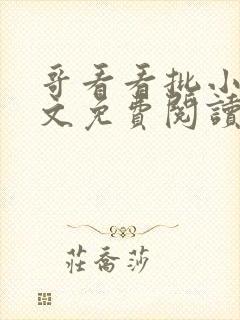 哥看看批小
文免費閱讀
莊喬莎